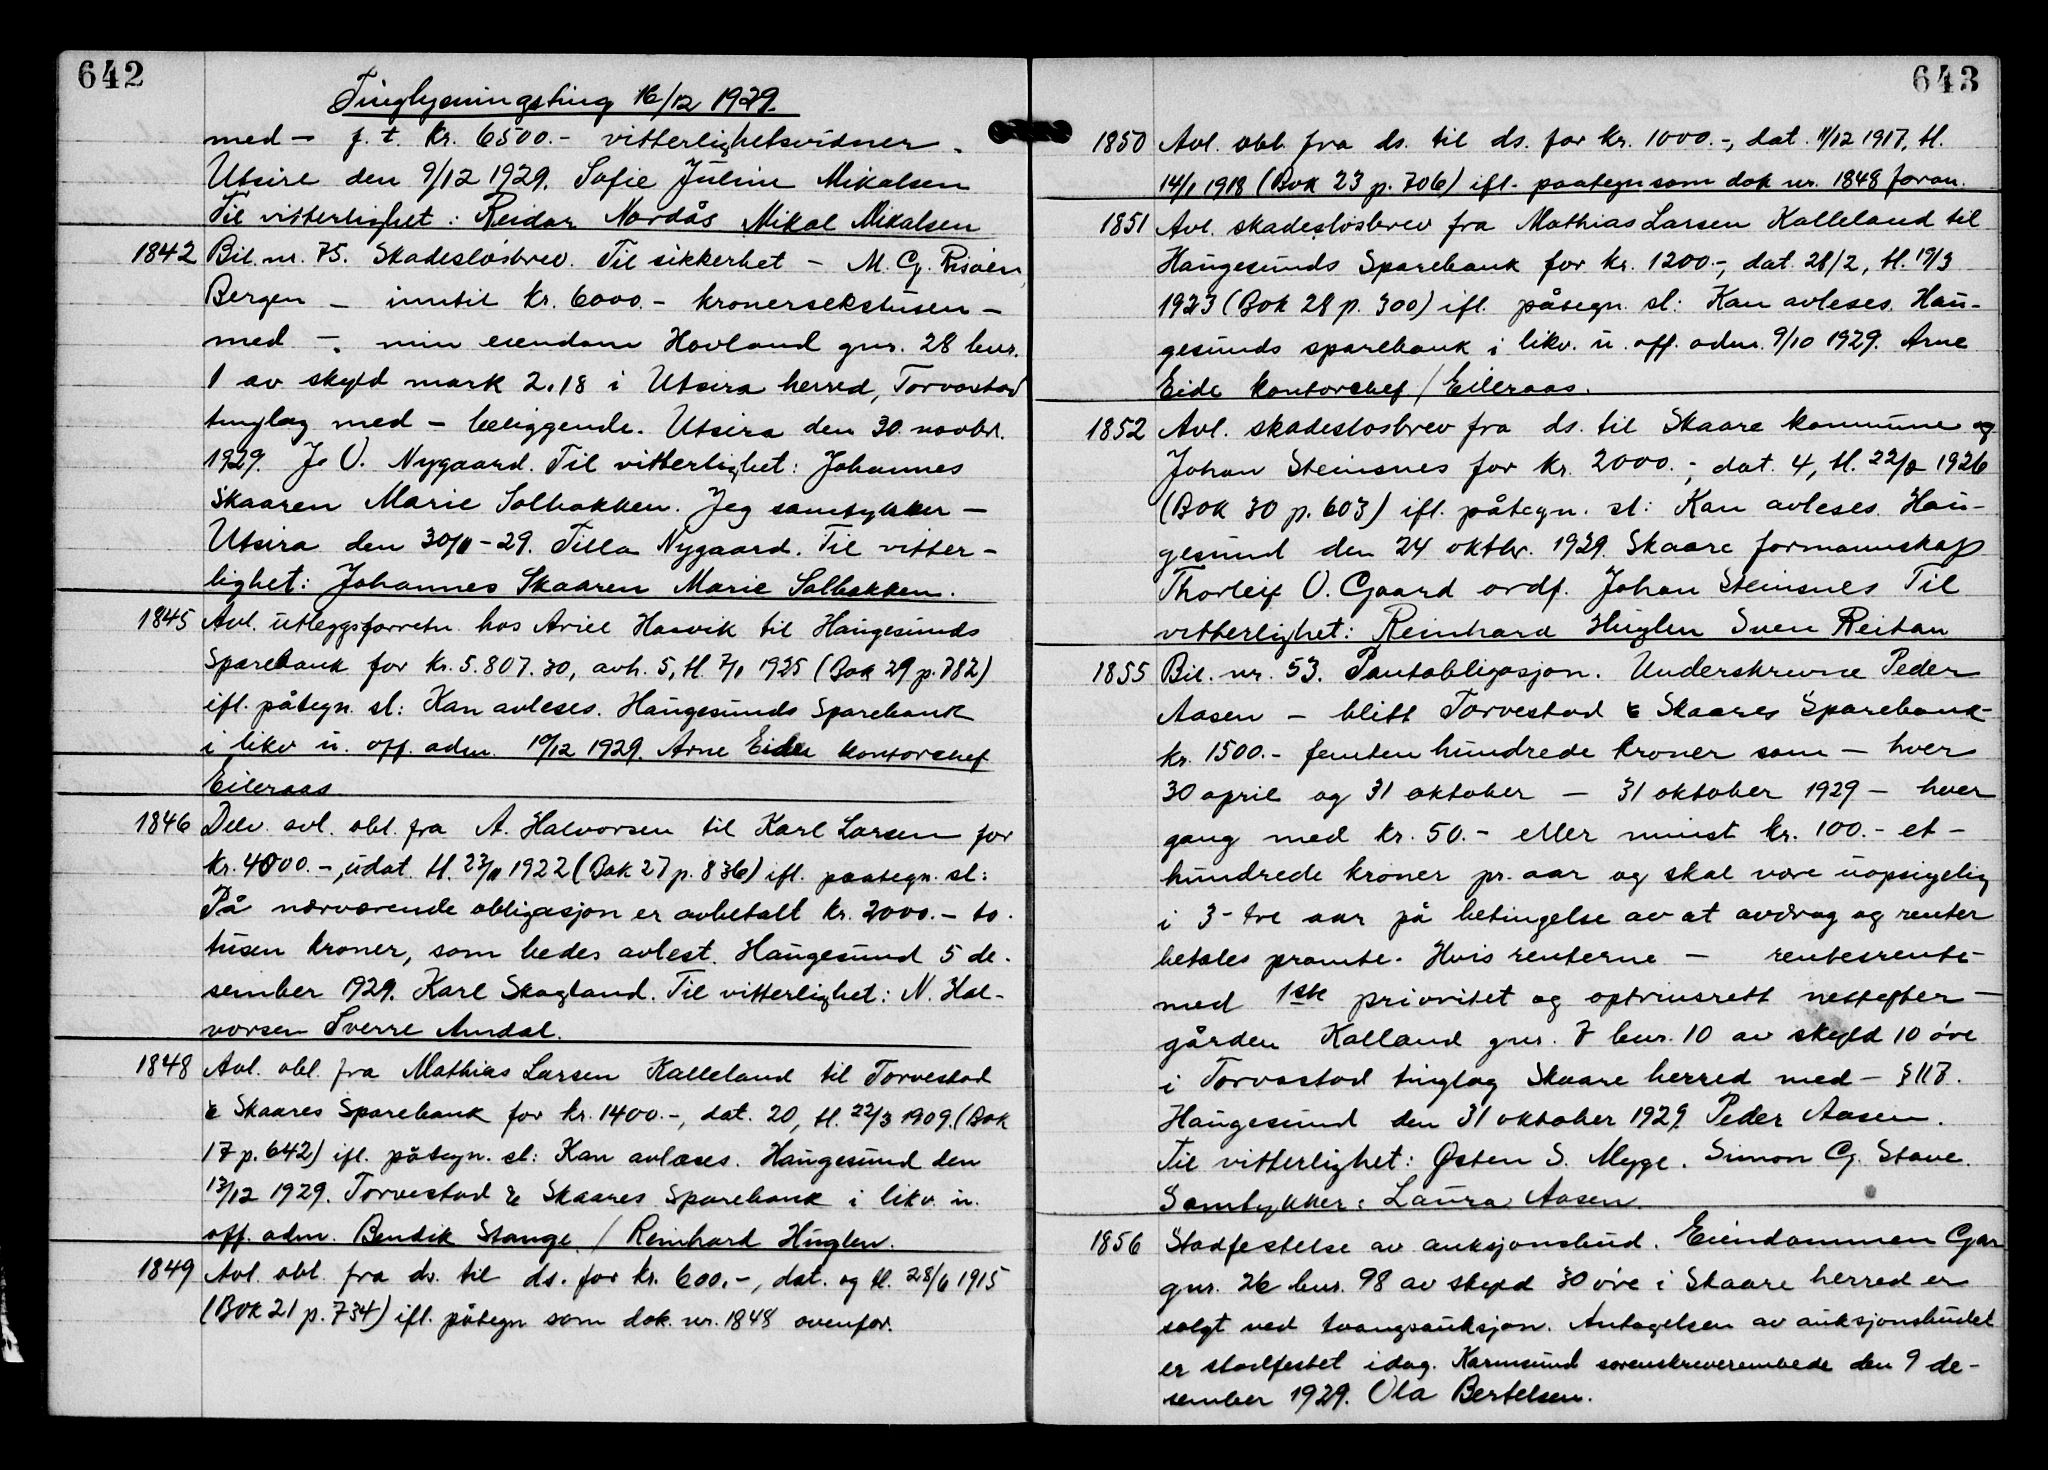 642
Tinglysningsting 16/12 1929.
med - f. t. kr. 6500.- vitterlighetsvidner.
Utsire den 9/12 1929. Sofie Juline Mikalsen
Til vitterlighet: Reidar Nordås Mikal Mikalsen
1842 Bil. nr. 75. Skadesløsbrev. Til sikkerhet - M. G. Risøen,
Bergen - inntil kr. 6000.- kronersekstusen -
med -. min eiendom Hovland gnr. 28 bnr.
1 av skyld mark 2.18 i Utsira herred, Torvastad
tinglag med - beliggende. Utsira den 30. novbr.
1929. Jo O. Nygaard. Til vitterlighet: Johannes
Skaaren Marie Solbakken. Jeg samtykker -
Utsira den 30/11-29. Tilla Nygaard. Til vitter-
lighet: Johannes Skaaren Marie Solbakken.
1845 Avl. utleggsforretn. hos Ariel Hasvik til Haugesunds
Sparebank for kr. 5.807.30, avh. 5, tl. 7/1 1925 (Bok 29 p. 782)
ifl. påtegn. sl: Kan avleses. Haugesunds Sparebank
i likv u. off. adm. 10/12 1929. Arne Eide kontorchef
Eileraas
1846 Delv. avl. obl. fra A. Halvorsen til Karl Larsen for
kr. 4000.-, udat. tl. 23/11 1922 (Bok 27 p. 836) ifl. paategn. sl:
På nærværende obligasjon er avbetalt kr. 2000.- to-
tusen kroner, som bedes avlest. Haugesund 5 de-
sember 1929. Karl Skagland. Til vitterlighet: N. Hal-
vorsen Sverre Amdal.
1848 Avl. obl. fra Mathias Larsen Kalleland til Torvestad
& Skaares Sparebank for kr. 1400.-, dat. 20, tl. 22/3 1909. (Bok
17 p. 642) ifl. påtegn. sl: Kan avlæses. Haugesund den
13/12 1929. Torvestad & Skaares Sparebank i likv. u.
off. adm. Bendik Stange / Reinhard Huglen.
1849 Avl. obl. fra ds. til ds. for kr. 600.-, dat. og tl. 28/6 1915
(Bok 21 p. 734) ifl. påtegn som dok. nr. 1848 ovenfor.
643
1850 Avl. obl. fra ds. til ds. for kr. 1000.-, dat. 11/12 1917, tl.
14/1 1918 (Bok 23 p. 706) ifl. paategn som dok nr. 1848 foran.
1851 Avl. skadesløsbrev fra Mathias Larsen Kalleland til
Haugesunds Sparebank for kr. 1200.-, dat. 28/2, tl. 19/3
1923 (Bok 28 p. 300) ifl. påtegn. sl: Kan avleses. Hau-
gesunds sparebank i likv. u. off. adm. 9/10 1929. Arne
Eide kontorchef / Eileraas.
1852 Avl. skadesløsbrev fra ds. til Skaare kommune og
Johan Steinsnes for kr. 2000.-, dat. 4, tl. 22/2 1926
(Bok 30 p. 603) ifl. påtegn. sl: Kan avleses. Hau-
gesund den 24 oktbr. 1929. Skaare formannskap
Thorleif O. Gaard ordf. Johan Steinsnes Til
vitterlighet: Reinhard Huglen Sven Reitan
1855 Bil. nr. 53. Pantobligasjon. Underskrevne Peder
Aasen - blitt Torvestad & Skaares Sparebank
kr. 1500.- femten hundrede kroner som - hver
30 april og 31 oktober - 31 oktober 1929 - hver
gang med kr. 50.- eller minst kr. 100.- et-
hundrede kroner pr. aar og skal være uopsigelig
i 3- tre aar på betingelse av at avdrag og renter
betales promte. Hvis renterne - rentesrente-
med 1ste prioritet og optrinsrett nestefter -
gården Kalland gnr. 7 bnr. 10 av skyld 10 øre
i Torvastad tinglag Skaare herred med - § 117.
Haugesund den 31 oktober 1929. Peder Aasen.
Til vitterlighet: Østen S. Myge. Simon G. Stave.
Samtykker: Laura Aasen.
1856 Stadfestelse av auksjonsbud. Eiendommen Gar
gnr. 26 bnr. 98 av skyld 30 øre i Skaare herred er
solgt ved tvangsauksjon. Antagelsen av auksjonsbudet
er stadfestet idag. Karmsund sorenskriverembede den 9 de-
sember 1929. Ola Bertelsen.